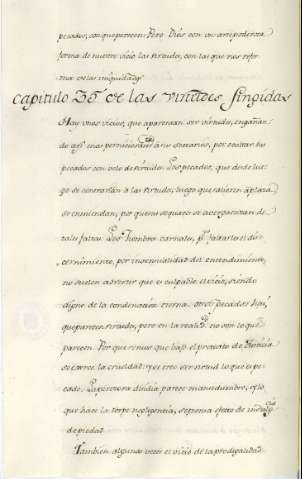 pecados, con que perecen. Pero Dios con su
forma de nuestro vicio las virtudes, con las que nos
de las iniquidades.
Capitulo 35 de las virtudes fingidas
Hay unos vicios, que aparentan ser virtudes, engañan
mas perniciosam.te a sus sectarios, por ocultar sus
pecados con velo de virtudes. Los pecados, que desde lue
go se contrarían a las virtudes, luego que salieren a plaza
se enmiendan, por que sus sequaces se avergonzaran de
tales faltas. Los hombres carnales, p.r faltarles el dis
cernimiento, por insensualidad del entendimiento,
no suelen advertir que es culpable el vicio, siendo
digno de la condenacion eterna. Otros pecados hai,
que parecen virtudes, pero en la realid.d no son lo que
parecen. Por que vemos que bajo el pretexto de Justicia
se exerce la crueldad: y se cree ser virtud lo que es pe
cado. La perezosa desidia parece mansedumbre, y lo
que hace la torpe negligencia, se piensa efecto de
de piedad.
Tambien algunas veces el vicio de la prodigalidad